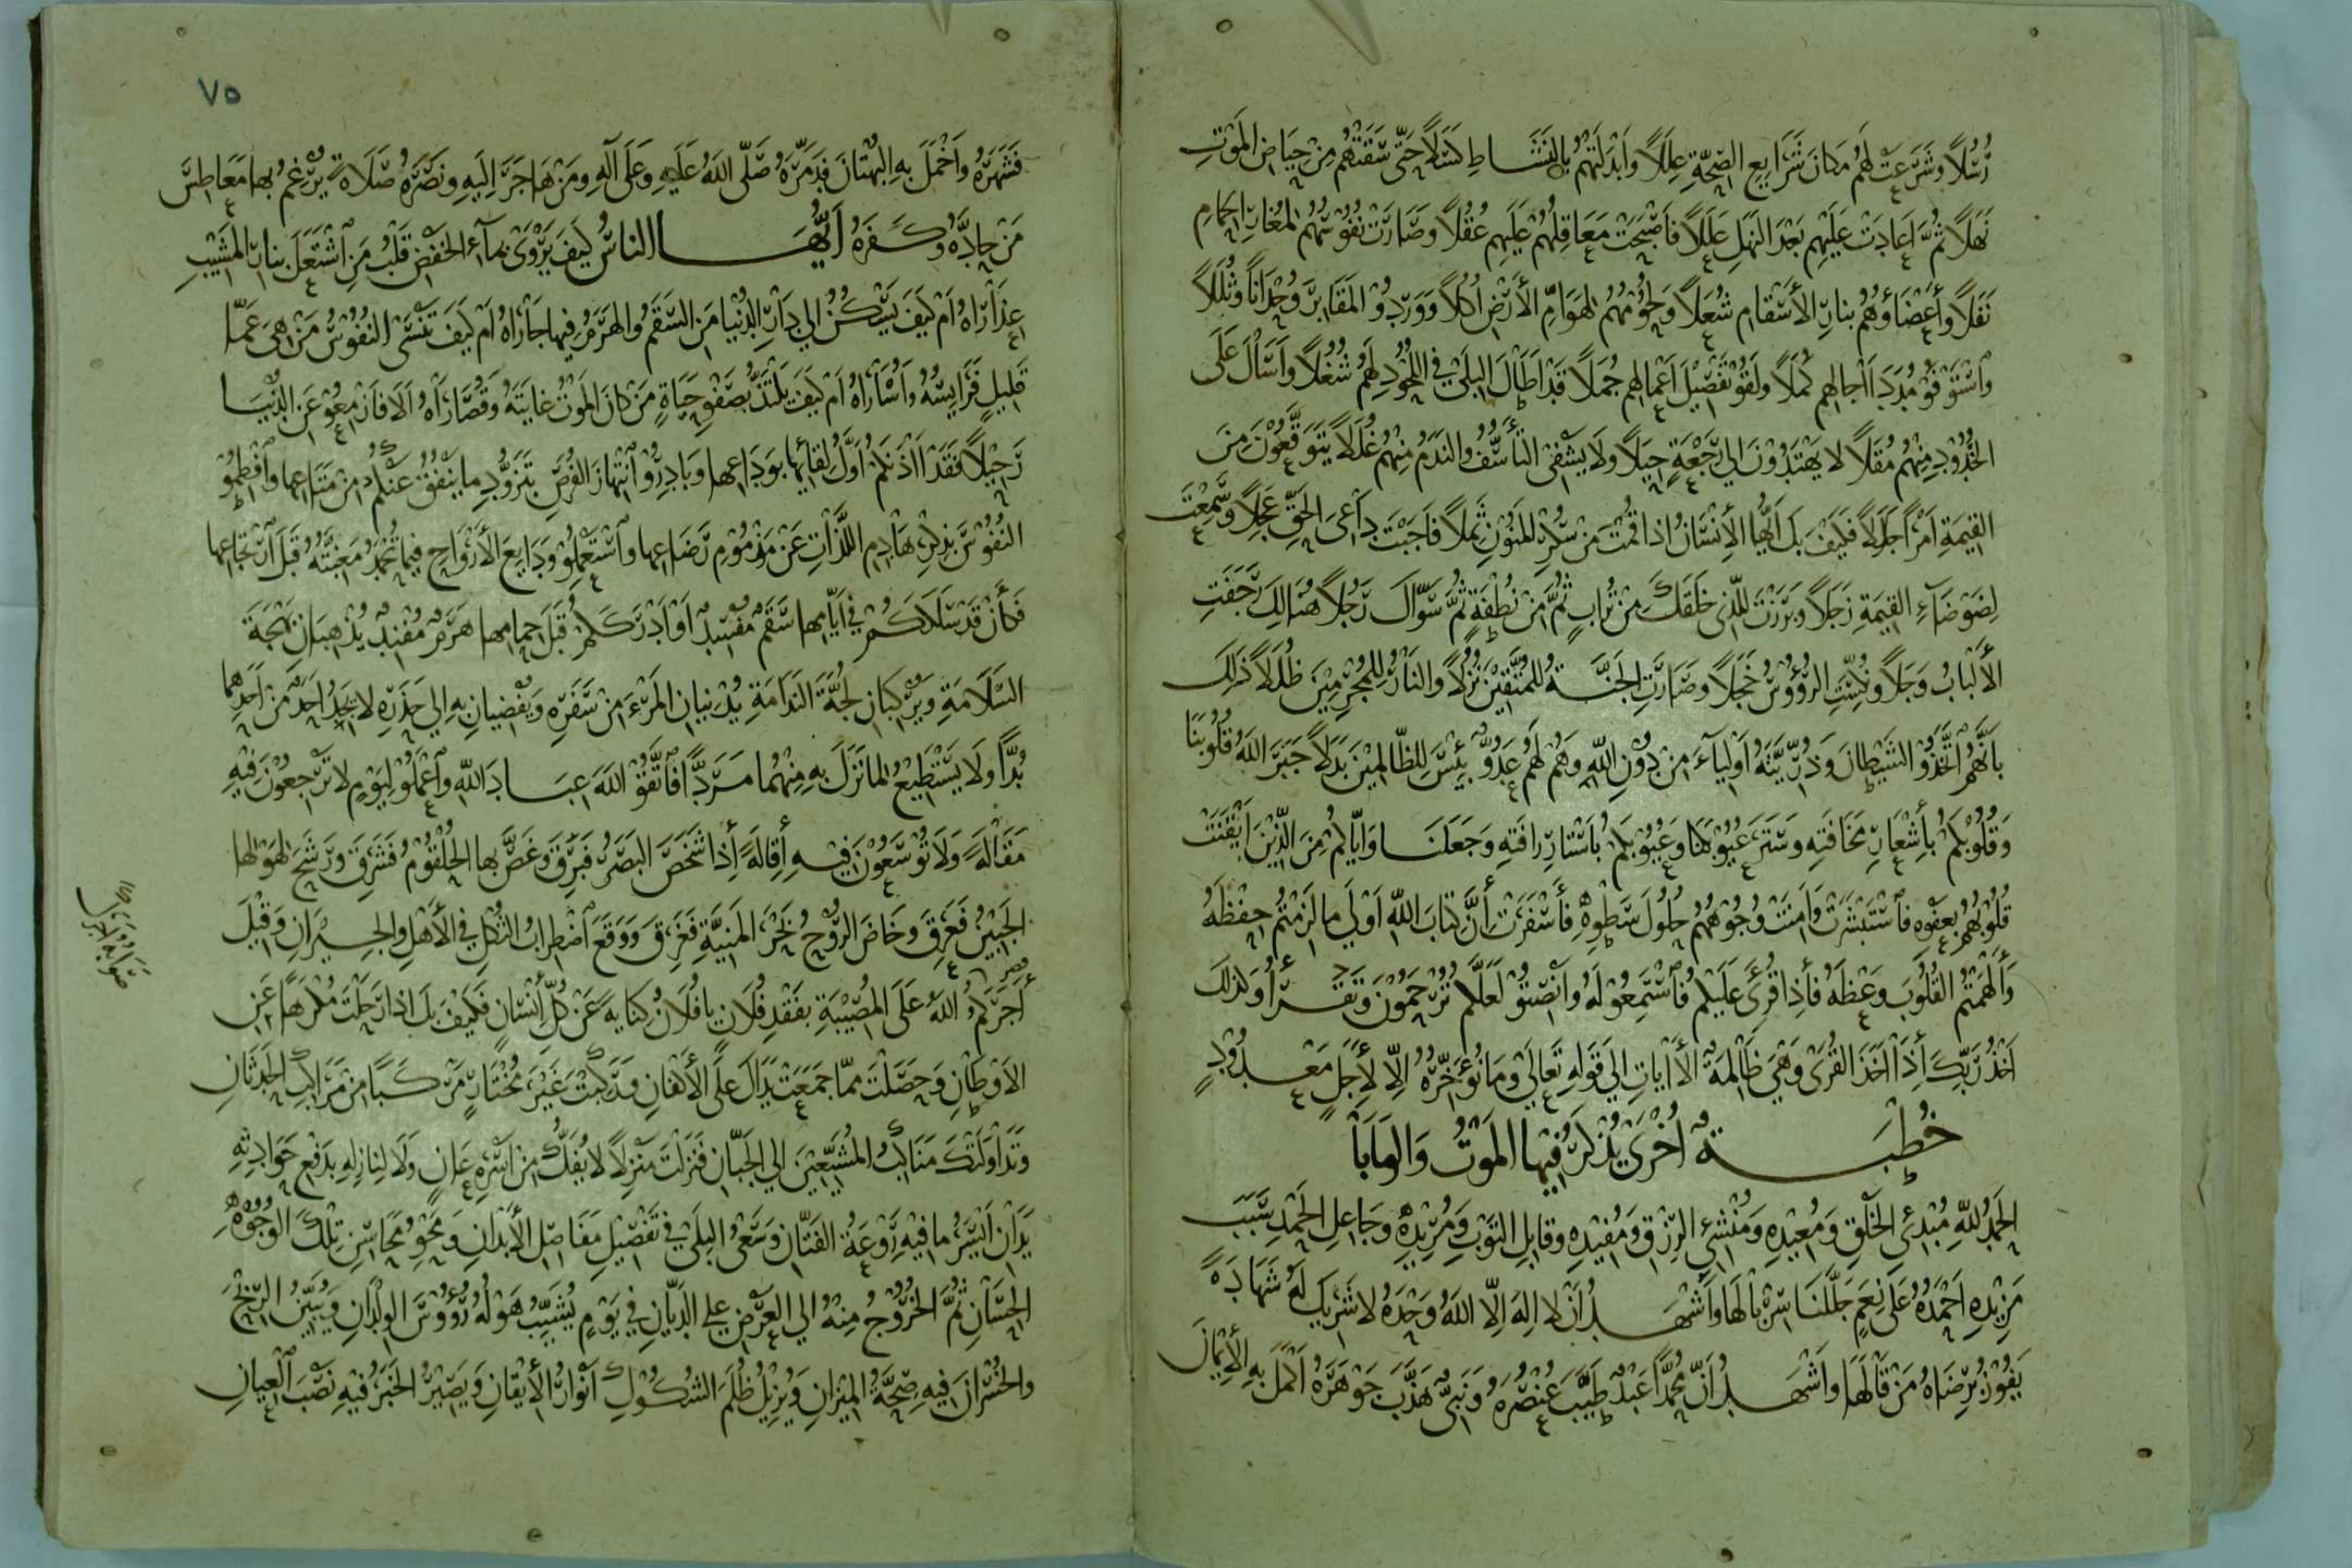 رُسُلًا وشَرَّعَتْ لهُم مَكانَ شَرَايعِ الصِّحَّةِ عِلَلًا وأبْدَلَتهُم بالنَشَاطِ كسَلًا حَتّى سَقَتْهُم مِنْ حِيَاضِ المَوْتِ
نَهَلًا ثُمَّ أعادَتْ عَلَيْهِم بَعْدَ النَهَلِ عَلَلًا فأصْبَحَتْ مَعَاقِلُهُمْ عَلَيهِم عُقُلًا وصَارَتْ نفُوسُهُمْ لمُغارِ الحِمَامِ
نَفَلًا وأعْضَاؤهُمْ بنارِ الأسْقامِ شُعَلًا ولحُومُهُمْ لهَوَامِّ الأرْضِ أُكُلًا ووَرَدُوْ المَقَابِرَ وُحْدَانًا وثُلَلًا
واسْتَوْفَوْ مُدَدَ آجالِهِم كُمَلًا ولَقُوْ تَفْصِيْلَ أعْمالِهِم جُمَلًا قدْ أطَالَ البِلَى في اللُّحُودِ لهُم شُغُلًا وأسَالَ عَلَى
الخُدُوْدِ مِنْهُم مُقَلًا لا يهْتَدُوْنَ إلي رَجْعَةٍ حِيَلًا ولا يَشْفي التَأسُّفُ والنَدَمُ مِنْهُمْ غُلَلًا يَتَوَقَّعُوْنَ مِنَ
القِيمَةِ أمْرًا جَلَلًا فكَيْفَ بكَ أيُّها الإنْسَانُ إذا قُمْتَ مِنْ سُكْرِ المَنُوْنِ ثَمِلًا فأجَبْتَ دَاعِيَ الحَقِّ عَجِلًا وسَمِعْتَ
لِضَوْضَآءِ القِيمَةِ زَجَلًا وبَرَزْتَ للّذي خَلَقَكَ مِنْ تُرَابٍ ثُمَّ مِنْ نُطْفَةٍ ثُمَّ سَوّاكَ رَجُلًا هُنَالِكَ رَجَفَتِ
الألْبابُ وَجَلًا ونُكِسَتِ الرُؤوْسُ خَجَلًا وصَارَتِ الجَنَّةُ للمُتَّقِيْنَ نُزُلًا والنَارُ للمُجْرِمِيْنَ ظُلَلًا ذَلِكَ
بأنَّهُمُ اتَّخَذُوْ الشَيْطانَ وَذُرِّيَّتَهُ أوْلِيَآءَ مِنْ دُوْنِ اللهِ وهُمْ لهُم عَدُوٌّ بِئْسَ لِلظّالِمِيْنَ بَدَلًا جَبَرَ اللهُ قُلُوْبَنَا
وَقُلُوْبَكُمْ بأشْعَارِ مخَافَتِهِ وسَتَرَ عُيُوْبَنَا وعُيُوْبَكُمْ بأسْتَارِ رافَتِهِ وجَعَلَنَا وَإيّاكُمْ مِنَ الذِّيْنَ أيْقَنَتْ
قُلُوْبُهُم بعَفْوِهِ فاسْتَبْشَرَتْ وَأمِنَتْ وُجُوْهُهُمْ حُلُوْلَ سَطْوِهِ فأسْفَرَتْ إنَّ كِتَابَ اللهِ أوْلَي ما لَزِمْتُمْ حِفْظَهُ
وَألْهَمْتُمُ القُلُوْبَ وعْظَهُ فأذا قُرِئَ عَلَيْكُم فاسْتَمِعُوْ لَهُ وأنْصِتُوْ لَعَلَّكُم تُرْحَمُوْنَ وتَقْرأُ وكَذلكَ
أخْذُ رَبِّكَ إذَا أخَذَ القُرَى وهْيَ ظَالِمَةٌ الأيَاتِ إلي قَوْلِهِ تَعَالَي وما نُؤَخِّرُهُ إلّا لأجَلٍ مَعْدُوْدٍ
خُطْبَةٌ أُخْرَى يُذْكَرُ فِيْها المَوْتُ وَالوَبَاْ
الحَمْدُ للهِ مُبْدِئِ الخَلْقِ وَمُعِيْدِهِ وَمُنْشِئ الرِزْقِ وَمُفِيْدِهِ وقابِلِ التَوْبِ وَمُرِيْدِهِ وجَاعِلِ الحَمْدِ سَبَبَ
مَزِيْدِهِ أحْمَدُهُ عَلَى نِعَمٍ جَلَّلَنَا سِرْبَالَها وأشْهَدُ أنْ لا إلهَ إلّا اللهُ وَحْدَهُ لا شَرِيْكَ لَهُ شَهَادَةً
يَفُوْزُ برِضَاهُ مَنْ قَالَهَا وأشْهَدُ أنّ مُحمَّدًا عَبْدٌ طَيَّبَ عُنْصُرَهُ وَنَبيٌّ هَذَّبَ جَوْهَرَهُ أكْمَلَ بِهِ الأيْمانَ
٧٥
فَشَهَرَهُ وأخْمَلَ بِهِ البُهْتَانَ فدَمَّرَهُ صَلّى اللهُ عَلَيهِ وعَلَى آلِهِ ومَنْ هَاجَرَ إلَيهِ ونَصَرَهُ صَلَاةً يُرْغِمُ بهَا مَعَاطِسَ
مَنْ حادَّهُ وكَفَرَهُ أيُّهَا الناسُ كيفَ يَرْوَى بمآءِ الخَفْضِ قَلْبُ مَنِ اشْتَعَلَ بنارِ المَشِيْبِ
عِذَارَاهُ أمْ كَيْفَ يَسْكُنُ إلي دَارِ الدُنْيا مَنِ السَقَمُ والهَرَمُ فيها جَارَاهُ أمْ كَيفَ تَنْسَى النفُوْسُ مَنْ هي عَمّا
قَلِيلٍ فَرَايِسُهُ وأُسَارَاهُ أمْ كيفَ يلتَذُّ بصَفْوِ حَيَاةٍ مَنْ كانَ المَوْتُ غايَتَهُ وقُصَارَاهُ ألا فازْمِعُوْ عَنِ الدُنْيَا
رَحِيْلًا فَقَدْ آذَنَتْكُمْ أوَّلُ لِقايها بوَدَاعِهِا وبَادِرُوْ انْتِهازَ الفُرَصِ بتَزَوُّدِ ما يَنْفُقُ عنْكُمْ مِنْ مَتَاعِها وافْطِمُوْ
النُفُوْسَ بذِكْرِ هَادِمِ اللَّذَّاتِ عَنْ مَذْمُوْمِ رَضَاعِها واسْتَعْمِلُوْ وَدَايعَ الأرْوَاحِ فيما تُحْمَدُ مَغَبَّتُهُ قَبْلَ ارْتِجَاعِها
فكَأنْ قَدْ سَلَاكُمْ في أيّامِها سَقَمٌ مُفْسِدٌ أوْ أدْرَكَكُمْ قَبْلَ حِمامِها هَرَمٌ مُفْنِدٌ يُذْهِبَانِ بَهْجَةَ
السَلَامَةِ ويُرْكِبَانِ لُجَّةَ النَدَامَةِ يُدْنيانِ المَرْءَ مِنْ سَفَرِهِ ويُفْضِيانِ بِهِ إلي حَذَرِهِ لا يَجِدُ أحَدٌ مِنْ أحَدِهِما
بُدًّا ولا يَسْتَطِيْعُ لما نَزَلَ بهِ مِنْهُما مَرَدًّا فاتَّقُوْ اللهَ عِبَادَ اللهِ واعْمَلُوْ لِيَوْمٍ لا تَرْجِعُوْنَ فِيْهِ
مَقَالَةً ولا تُوْسَعُوْنَ فِيهِ أقِالَةً إذا شَخَصَ البَصَرُ فبَرِقَ وغَصَّ بها الحُلْقُوْمُ فشَرِقَ ورَشَحَ لهَوْلِها
الجَبِيْنُ فَعَرِقَ وخَاضَ الرُوْحُ بحْرَ المَنِيَّةِ فغَرِقَ ووَقَعَ اضْطِرابُ الثُكْلِ في الأهْلِ والجِيْرَانِ وَقِيْلَ
أجَرَكُمُ اللهُ عَلَى المُصِيْبَةِ بفَقْدِ فُلَانٍ يا فُلَانُ كنَايةً عَنْ كُلِّ إنْسَانٍ فكَيْفَ بكَ إذا رَحَلْتَ مُكْرَهًا عَنِ
الأوْطَانِ وحَصَلْتَ ممّا جَمَعَتْ يَدَاكَ عَلَى الأكْفانِ ورَكِبْتَ غَيْرَ مُخْتَارٍ مَرْكَبًا مِنْ مَرَاكِبِ الحَدَثَانِ
وتَدَاوَلَتْكَ مَنَاكِبُ المُشَيِّعِيْنَ إلي الجَبّانِ فنَزَلْتَ مَنْزِلًا لا يُفَكُّ مِنْ أسْرِهِ عَانٍ ولَا لِنازِلِهِ بدَفْعِ حَوَادِثِهِ
يَدَانِ أيْسَرُ ما فِيْهِ رَوْعَةُ الفَتّانِ وسَعْيُ البِلَى في تَفْصِيْلِ مَفَاصِلِ الأبْدَانِ ومَحْوُ مَحَاسِنِ تِلْكَ الوُجُوْهِ
الحِسَانِ ثُمَّ الخُرُوْجُ مِنْهُ إلي العَرْضِ علي الدَيّانِ في يَوْمٍ يُشَيِّبُ هَوْلُهُ رُؤُوْسَ الوِلْدَانِ وَيُبَيِّنُ الرِبْحَ
والخُسْرَانَ فِيهِ صِحَّةُ المِيْزَانِ ويُزِيْلُ ظُلَمَ الشُكُوْكِ أنْوَارُ الأيْقَانِ وَيَصِيْرُ الخَبَرُ فيْهِ نَصْبَ العِيانِ